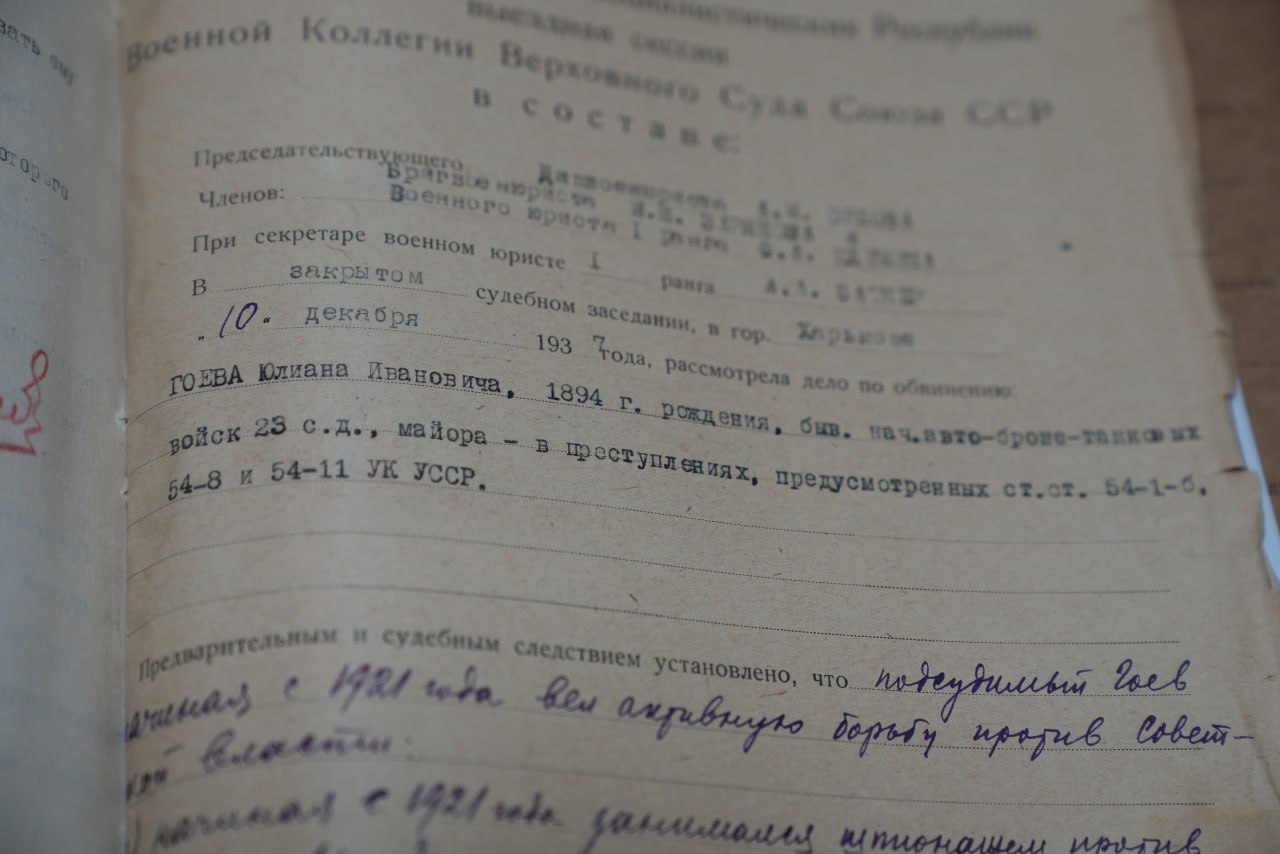 зать ему
оторого
Республик
выездная сессия
Военной Коллегии Верховного Суда Союза ССР
в составе:
Председательствующего Диввоенюриста
Бригвоенюриста
Членов: Военного юриста I ранга
При секретаре военном юристе I ранга
В закрытом судебном заседании, в гор. Харькове
„10" декабря 1937 года, рассмотрела дело по обвинению:
ГОЕВА Юлиана Ивановича, 1894 г. рождения, быв. нач.авто-броне-танковых
войск 23 с.д., майора – в преступлениях, предусмотренных ст.ст. 54-1-б,
54-8 и 54-11 УК УССР.
Предварительным и судебным следствием установлено, что подсудимый Гоев
начиная с 1921 года вел активную борьбу против Совет-
кой власти:
начиная с 1921 года занимался шпионажем против